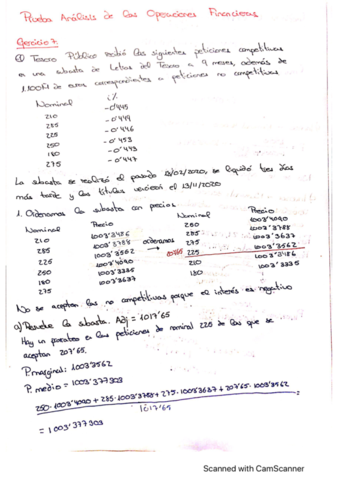 Prueba Análisis de las Operaciones Financieras
Ejercicio 7:
El Tesoro Público recibió las siguientes peticiones competitivas
en una subasta de Letras del Tesoro a 9 meses, además de
1.100M de euros correspondientes a peticiones no competitivas
Nominal i%
210 -0'445
285 -0'449
225 -0'446
250 -0'453
180 -0'443
275 -0'447
La subasta se realizó el pasado 10/02/2020, se liquidó tres días
más tarde y los títulos vencieron el 13/11/2020
1. Ordenamos la subasta con precios
Nominal Precio Nominal Precio
210 1003'3486 250 1003'4090
285 1003'3788 ordenamos 285 1003'3788
225 1003'3562 275 1003'3637
250 1003'4090 207'65 225 1003'3562
180 1003'3335 210 1003'3486
275 1003'3637 180 1003'3335
No se aceptan las no competitivas porque el interés es negativo
a) Resuelve la subasta. Adj = 1017'65
Hay un prorrateo en las peticiones de nominal 225 de las que se
aceptan 207'65.
P.marginal: 1003'3562
P.medio = 1003'377303
250·1003'4090 + 285·1003'3788 + 275·1003'3637 + 207'65·1003'3562
1017'65
= 1003'377303
Scanned with CamScanner